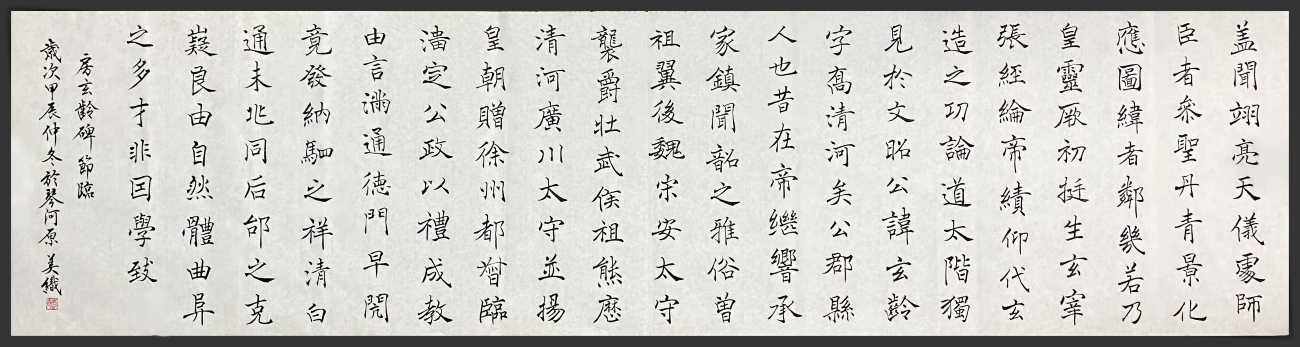 盖聞翊亮天儀處師
臣者叅聖丹青景化
應圖緯者鄰幾若乃
皇靈厥初挺生玄宰
張經綸帝績仰代玄
造之功論道太階獨
見於文昭公諱玄齡
字喬清河矣公郡縣
人也昔在帝繼響承
家鎮聞韶之雅俗曾
祖翼後魏宋安太守
襲爵壯武侯祖熊歷
清河廣川太守並揚
皇朝贈徐州都督臨
淄定公政以禮成教
由言滿通德門早開
竟發納駟之祥清白
通未兆同后郃之克
嶷良由自然體曲异
之多才非因學致
房玄齡碑 節臨
歲次甲辰仲冬於琴河原 美織